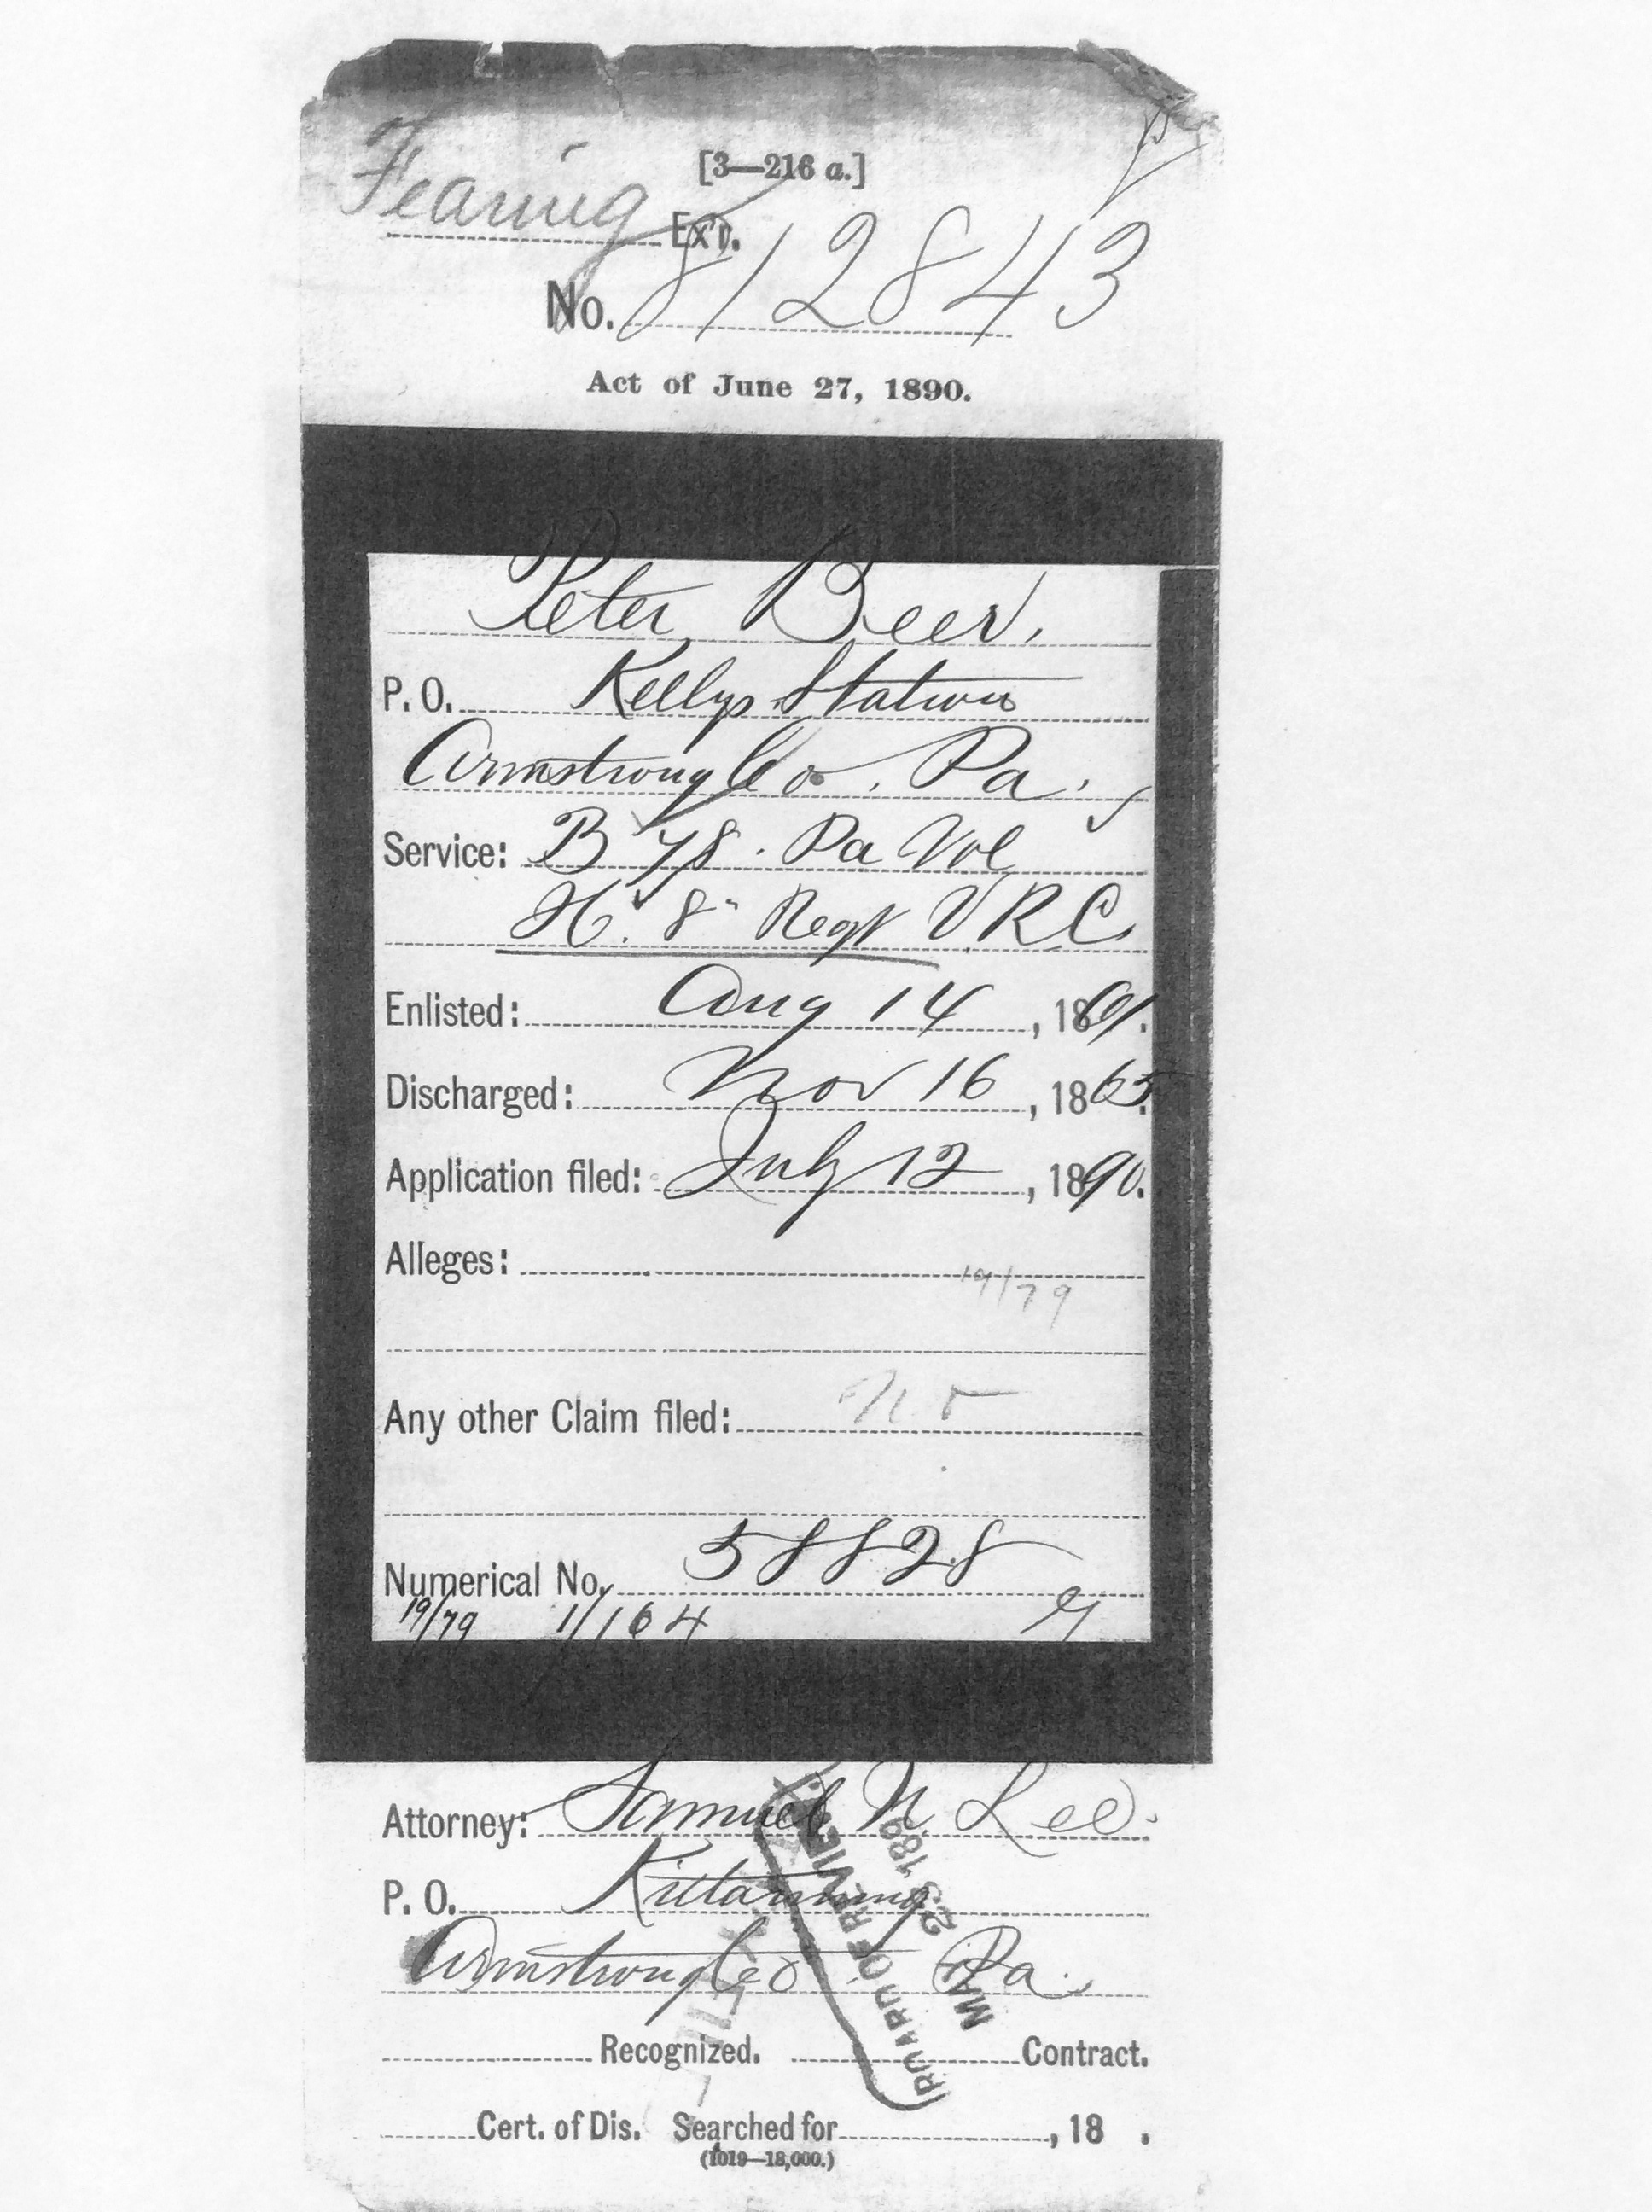 [3—216 a.]
Fearing Ex'r.
No. 812843
Act of June 27, 1890.
Peter Beer.
P. O. Kellys Station
Armstrong Co. Pa.
Service: B 78. Pa Vol
H. 8" Regt V.R.C.
Enlisted: Aug 14, 1861.
Discharged: Nov 16, 1865.
Application filed: July 12, 1890.
Alleges:
19/79
Any other Claim filed: No
Numerical No. 58828
19/79 1/164
Attorney: Samuel N Lee.
P. O. Kittanning
Armstrong Co Pa.
BOARD OF REVIEW
MAR 23 189
Recognized. Contract.
Cert. of Dis. Searched for , 18 .
(1019—18,000.)